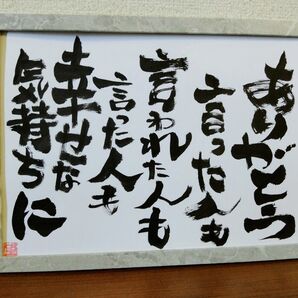 ありがとう
言った人も
言われた人も
言った人も
幸せな
気持ちに